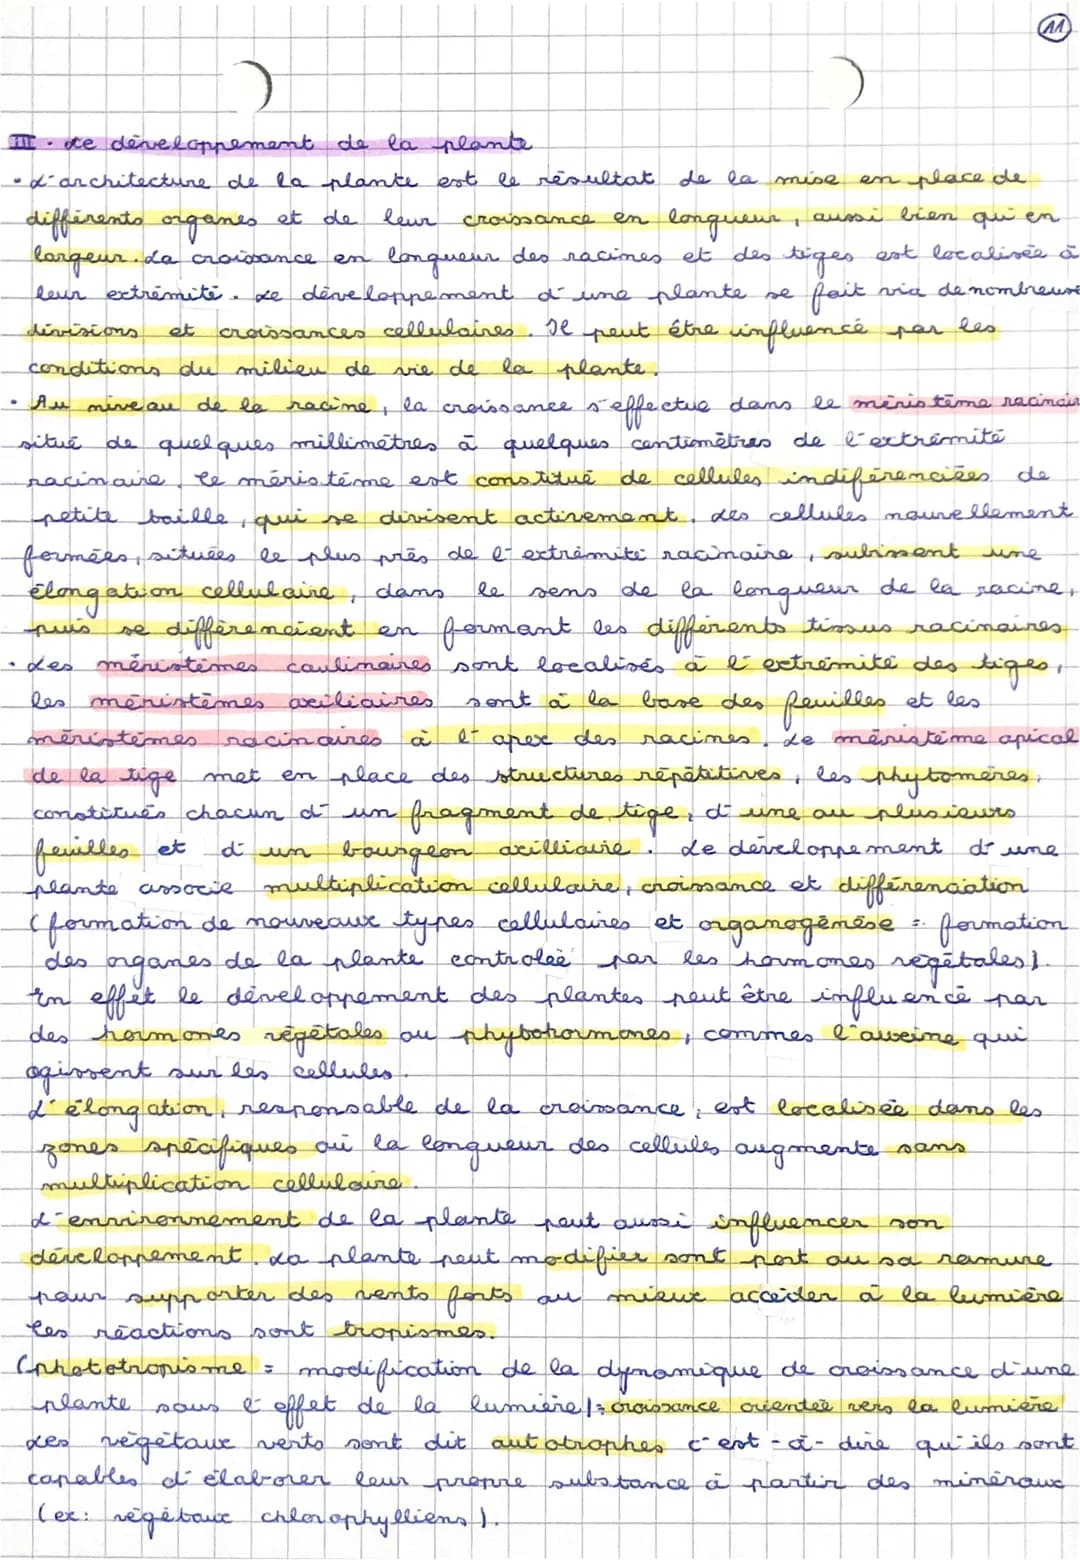 11
III. Le développement de la plante
• L'architecture de la plante est le résultat de la mise en place de
différents organes et de leur croissance en longueur, aussi bien qu'en
largeur. La croissance en longueur des racines et des tiges est localisée à
leur extrémité. Le développement d'une plante se fait via de nombreuse
divisions et croissances cellulaires. Il peut être influencé par les
conditions du milieu de vie de la plante.
• Au niveau de la racine, la croissance s'effectue dans le méristème racinair
situé de quelques millimètres à quelques centimètres de l'extrémité
racinaire. Ce méristème est constitué de cellules indiférenciées de
petite taille, qui se divisent activement. Les cellules nouvellement
formées, situées le plus près de l'extrémité racinaire, subissent une
élongation cellulaire, dans le sens de la longueur de la racine,
puis se différencient en formant les différents tissus racinaires
• Les méristèmes caulinaires sont localisés à l'extrémité des tiges,
les méristèmes axiliaires sont à la base des feuilles et les
méristèmes racinaires à l'apex des racines. Le méristème apical
de la tige met en place des structures répétitives, les phytomères,
constitués chacun d'un fragment de tige, d'une ou plusieurs
feuilles et d'un bourgeon axilliaire. Le développement d'une
plante associe multiplication cellulaire, croissance et différenciation
(formation de nouveaux types cellulaires et organogénèse = formation
des organes de la plante controleé par les hormones végétales).
En effet le développement des plantes peut être influencé par
des hormones végétales ou phytohormones, commes l'auxine qui
agissent sur les cellules.
L'élongation, responsable de la croissance, est localisée dans les
zones spécifiques où la longueur des cellules augmente sans
multiplication cellulaire.
L'environnement de la plante peut aussi influencer son
développement. La plante peut modifier sont port ou sa ramure
pour supporter des vents forts ou mieux accéder à la lumière
les réactions sont tropismes.
(phototropisme = modification de la dynamique de croissance d'une
plante sous l'effet de la lumière) = croissance orientée vers la lumière
Les végétaux verts sont dit autotrophes c'est-à-dire qu'ils sont
capables d'élaborer leur propre substance à partir des minéraux
(ex: végétaux chlorophylliens).